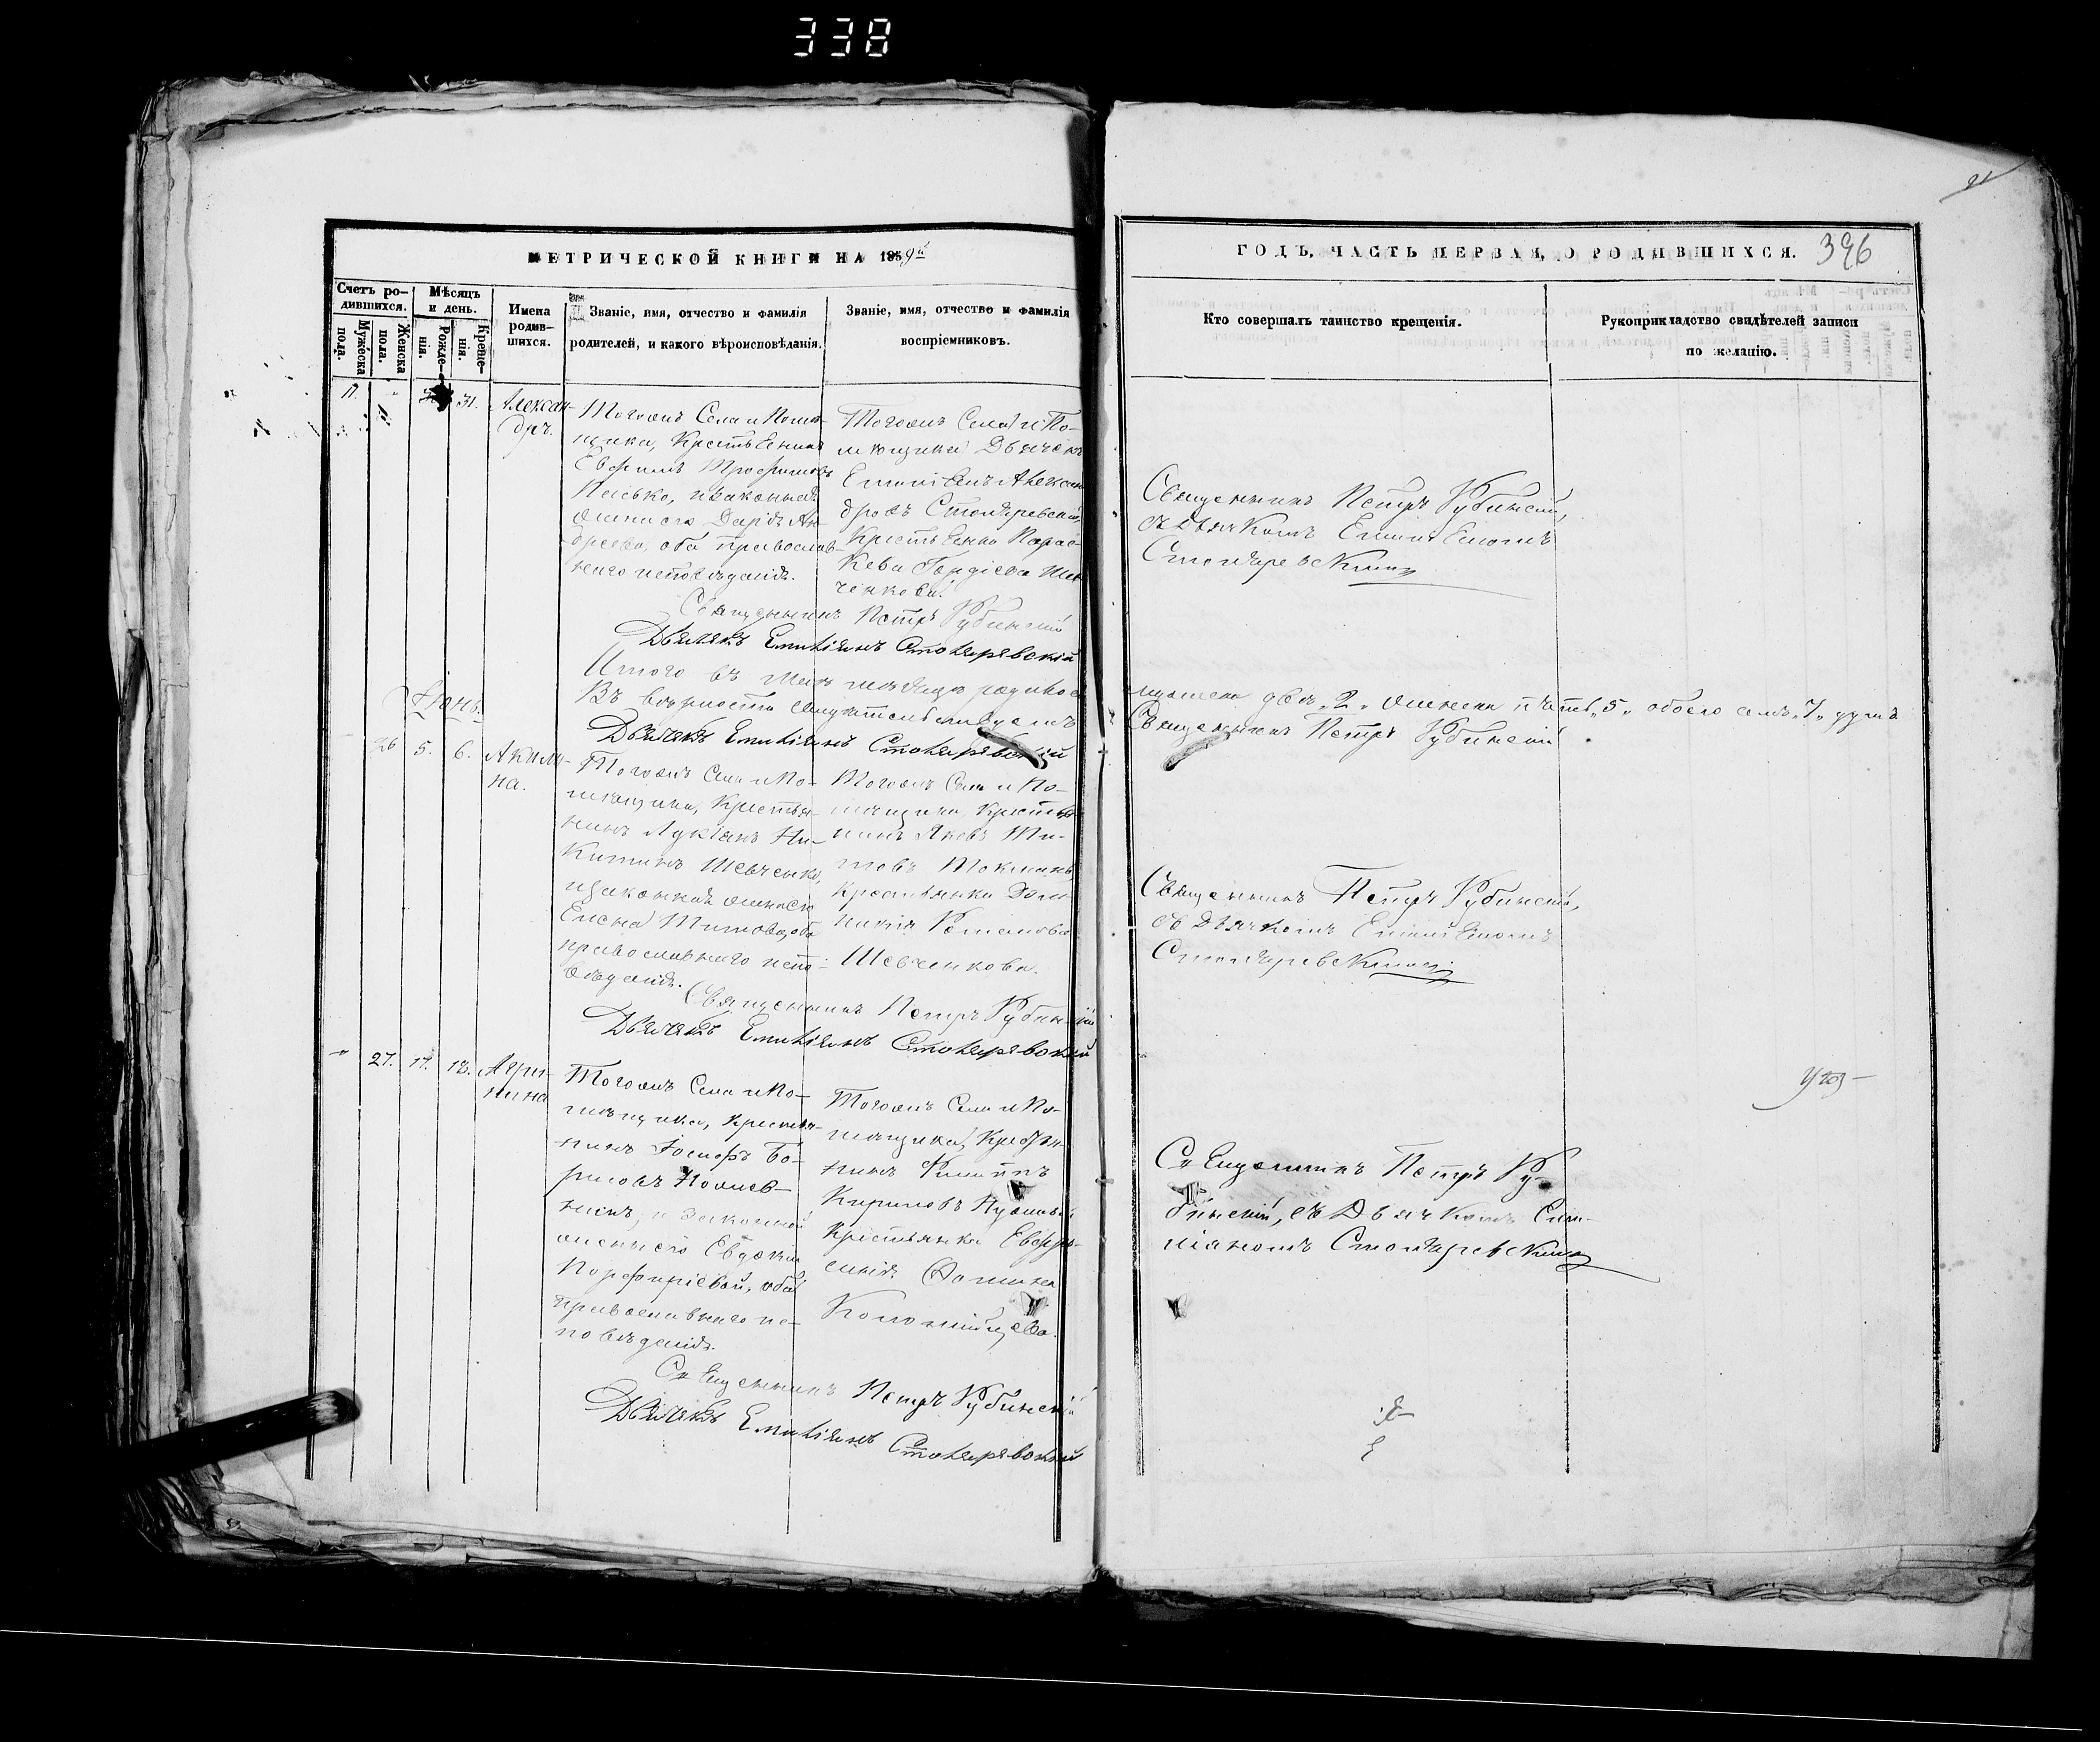 338
МЕТРИЧЕСКОЙ КНИГИ НА 1859й
ГОДЪ, ЧАСТЬ ПЕРВАЯ, О РОДИВШИХСЯ.
396
Счетъ родившихся.
Мужеска пола.
Женска пола.
Мѣсяцъ и день.
Рожденія.
Крещенія.
Имена родившихся.
Званіе, имя, отчество и фамилія
родителей, и какого вѣроисповѣданія.
Званіе, имя, отчество и фамилія
воспріемниковъ.
Кто совершалъ таинство крещенія.
Рукоприкладство свидѣтелей записи
по желанію.
31.
Алексан-
дръ.
Тогожъ Села и Помѣ-
щика, Крестьянинъ
Ефимъ Трофимовъ
и законная
жена его Дарія Ан-
дреева, оба православ-
наго исповѣданія.
Тогожъ Села и По-
мѣщика Дьячекъ
Емиліанъ Алексан
дровъ Столяревскій,
Крестьянка Парас-
кева Гордіева Шев
ченкова.
Священникъ Петръ Рубинскій,
съ дьячкомъ Емиліаномъ
Столяревскимъ
Священникъ Петръ Рубинскій
Дьячекъ Емиліянъ Столяревскій
Итого въ Маѣ мѣсяцѣ родилось
мужеска два „2„ женска пять „5„ обоего семь „7„ душъ
Въ вѣрности свидѣтельствуемъ
Священникъ Петръ Рубинскій
Дьячекъ Емиліянъ Столяревскій
Іюнь.
26 5. 6.
Акили-
на.
Тогожъ Села и По-
мѣщика, Крестья-
нинъ Лукіанъ Ни-
китинъ Шевченко,
и законная жена его
Елена Титова, оба
православнаго испо-
вѣданія.
Тогожъ Села и По-
мѣщика Крестья
нинъ Яковъ Ти-
товъ
Крестьянка
Романова
Шевченкова.
Священникъ Петръ Рубинскій,
съ Дьячкомъ Емиліаномъ
Столяревскимъ
Священникъ Петръ Рубинскій
Дьячекъ Емиліянъ Столяревскій
27. 17. 18.
Агри-
пина
Тогожъ Села и По-
мѣщика, Крестья-
нинъ Іосифъ Бо-
рисовъ
и законная
жена его Евдокія
Порфиріева, оба
православнаго ис-
повѣданія.
Тогожъ Села и По-
мѣщика, Крестья-
нинъ
Кириловъ
Крестьянка Евфро-
синія Фомина
Коломійцева.
Священникъ Петръ Ру-
бинскій, съ Дьячкомъ Еми-
ліяномъ Столяревскимъ
Священникъ Петръ Рубинскій
Дьячекъ Емиліянъ Столяревскій